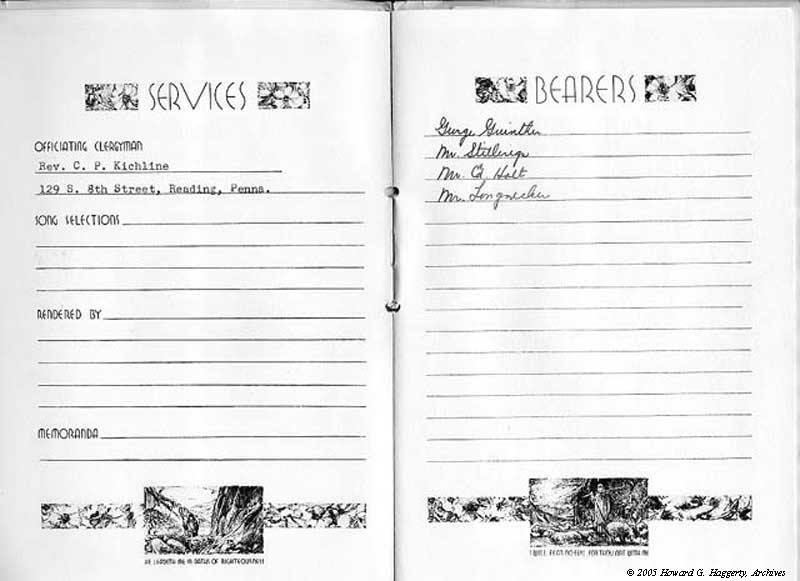 SERVICES
OFFICIATING CLERGYMAN
Rev. C. P. Kichline
129 S. 8th Street, Reading, Penna.
SONG SELECTIONS
RENDERED BY
MEMORANDA
HE LEADETH ME IN PATHS OF RIGHTEOUSNESS
BEARERS
George Guinther
Mr.
Mr. Ed Holt
Mr. Longnecker
I WILL FEAR NO EVIL FOR THOU ART WITH ME
© 2005 Howard G. Haggerty, Archives